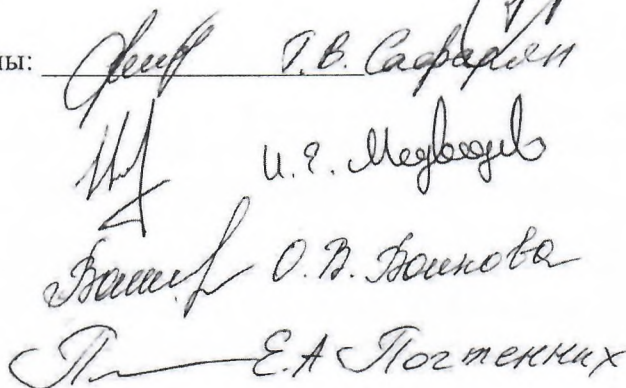 ны: Г.В. Сафарян
И.Е. Медведев
О.В. Воинова
Е.А Почтенных